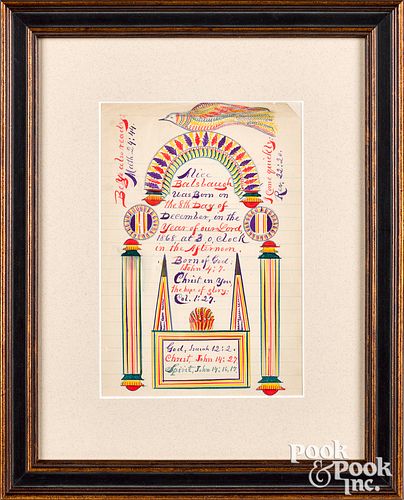 Be ye also ready,
Math 24:44
Alice
Balsbaugh
Was Born on
the 8th Day of
December, in the
Year of our Lord
1868, at 3 o,clock
in the Afternoon.
Born of God.
1John 4:7.
Christ in You
The hope of glory.
Col. 1:27.
Come quickly.
Rev. 22:20.
God, Isaiah 12:2.
Christ, John 14:27
Spirit, John 14:16,17.
Pook
& Pook
Inc.